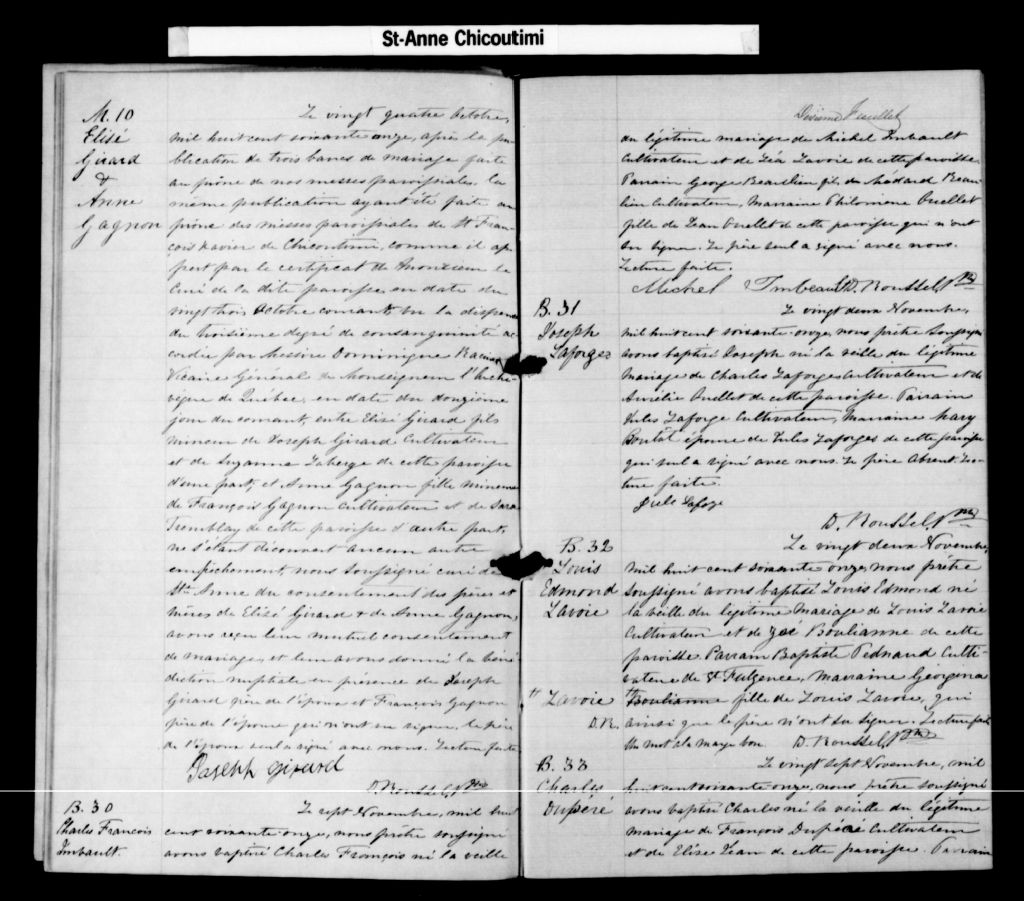 St-Anne Chicoutimi
M. 10
Elisé
Girard
&
Anne
Gagnon
Le vingt quatre Octobre,
mil huit cent soixante onze, après la pu
blication de trois bancs de mariage faite
au prône de nos messes paroissiales, la
même publication ayant été faite au
prône des messes paroissiales de St Fran
çois Xavier de Chicoutimi, comme il ap
pert par le certificat de Monsieur le
Curé de la dite paroisse en date du
vingt trois Octobre courant, vu la dispense
du troisième degré de consanguinité ac
cordée par Messire Dominique Racine
Vicaire Général de Monseigneur l'Arche
vêque de Québec, en date du douzième
jour du courant, entre Elisé Girard fils
mineur de Joseph Girard Cultivateur
et de Suzanne Laberge de cette paroisse
d'une part, et Anne Gagnon fille mineure
de François Gagnon cultivateur et de Sara
Tremblay de cette paroisse d'autre part,
ne s'étant découvert aucun autre
empêchement, nous soussigné curé de
Ste Anne du consentement des pères et
mères de Elizé Girard & de Anne Gagnon,
avons reçu leur mutuel consentement
de mariage, et leur avons donné la béné
diction nuptiale en présence de Joseph
Girard père de l'époux et François Gagnon
père de l'épouse qui n'ont su signer. le père
de l'époux seul a signé avec nous. Lecture faite
Joseph girard
D. Roussel Ptre
B. 30
Charles François
Imbault.
Le sept Novembre, mil huit
cent soixante onze, nous prêtre soussigné
avons baptisé Charles François né la veille
Dixième Feuillet
du légitime mariage de Michel Imbault
Cultivateur et de Léa Lavoie de cette paroisse
Parrain George Beaulieu fils de Médard Beau
lieu Cultivateur, Marraine Philomène Ouellet
fille de Jean Ouellet de cette paroisse qui n'ont
su signer. Le père seul a signé avec nous.
Lecture faite.
Michel Imbeault D. Roussel Ptre
B. 31
Joseph
Laforge
Le vingt deux Novembre,
mil huit cent soixante-onze, nous prêtre soussigné
avons baptisé Joseph né la veille du légitime
mariage de Charles Laforges Cultivateur et de
Aurélie Ouellet de cette paroisse. Parrain
Jules Laforge Cultivateur, Marraine Mary
Boulat épouse de Jules Laforges de cette paroisse
qui seul a signé avec nous. Le père absent. Lec
ture faite.
Jule Lafoge
D. Roussel, Ptre
B. 32
Louis
Edmond
Lavoie
Le vingt deux Novembre,
mil huit cent soixante onze, nous prêtre
soussigné avons baptisé Louis Edmond né
la veille du légitime Mariage de Louis Lavoie
Cultivateur et de Zoé Boulianne de cette
paroisse Parrain Baptiste Pednaud Culti-
vateur de St Fulgence, Marraine Georgina
tt Lavoie
D.R.
tt Boulianne fille de Louis Lavoie, qui
ainsi que le père n'ont su signer. Lecture faite
Un mot à la marge bon. D. Roussel Ptre
B. 33
Charles
Duperé
Le vingt sept Novembre, mil
huit cent soixante onze, nous prêtre soussigné
avons baptisé Charles né la veille du légitime
mariage de François Duperé Cultivateur
et de Elise Jean de cette paroisse. Parrain